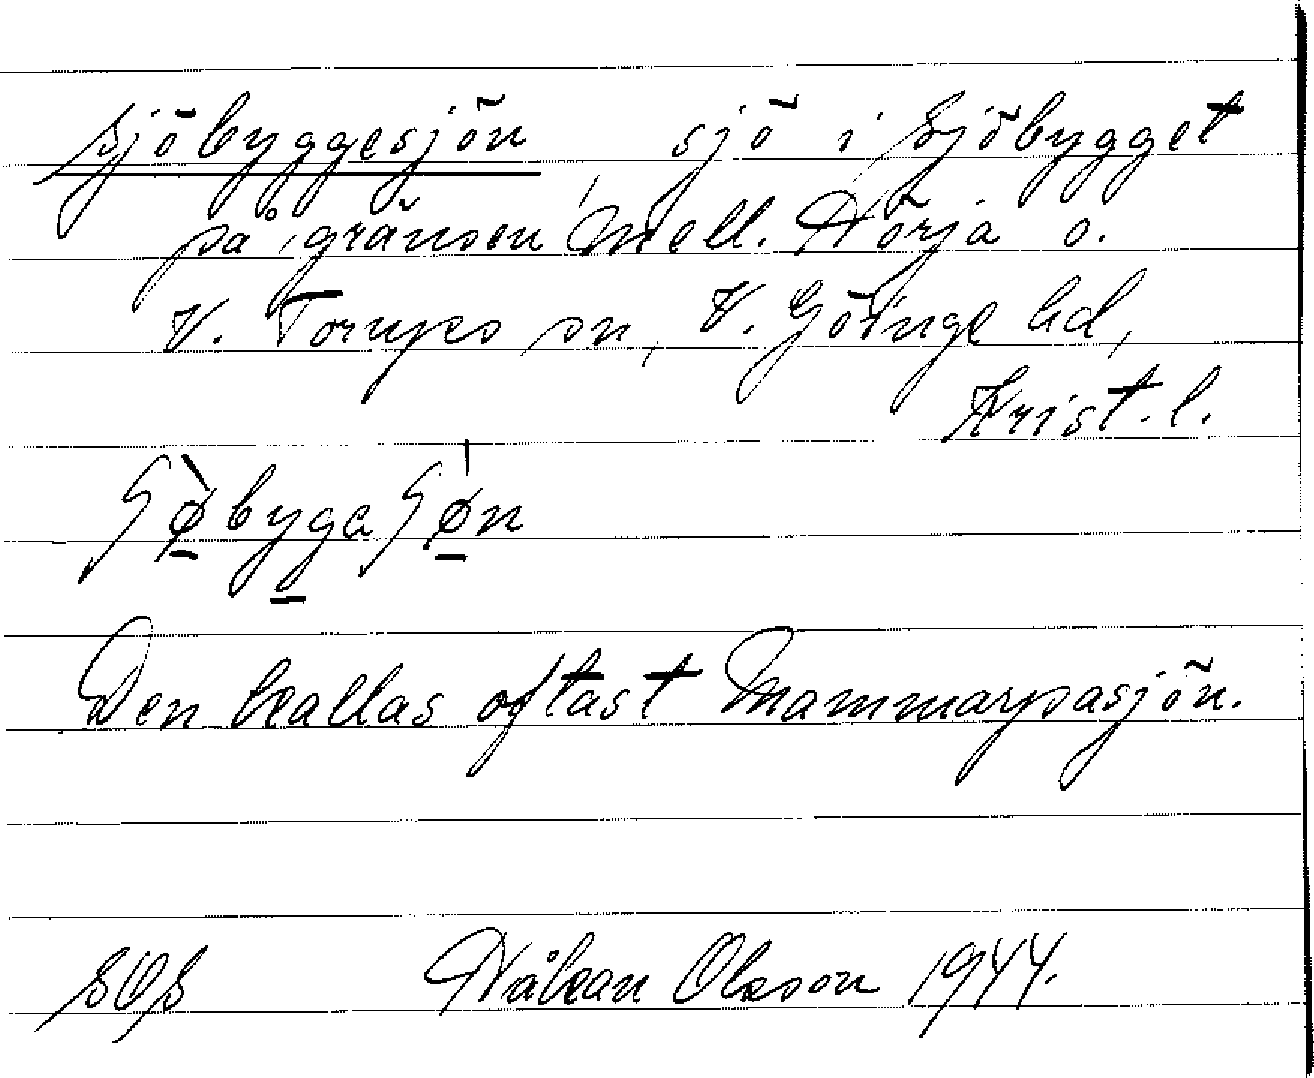 Sjöbyggesjön, sjö i Sjöbygget
på gränsen mell. Hörja o.
V. Torups sn, V. Göinge hd,
Krist. l.
Den kallas oftast Mammarpasjön.
SOS Håkan Olsson 1944.